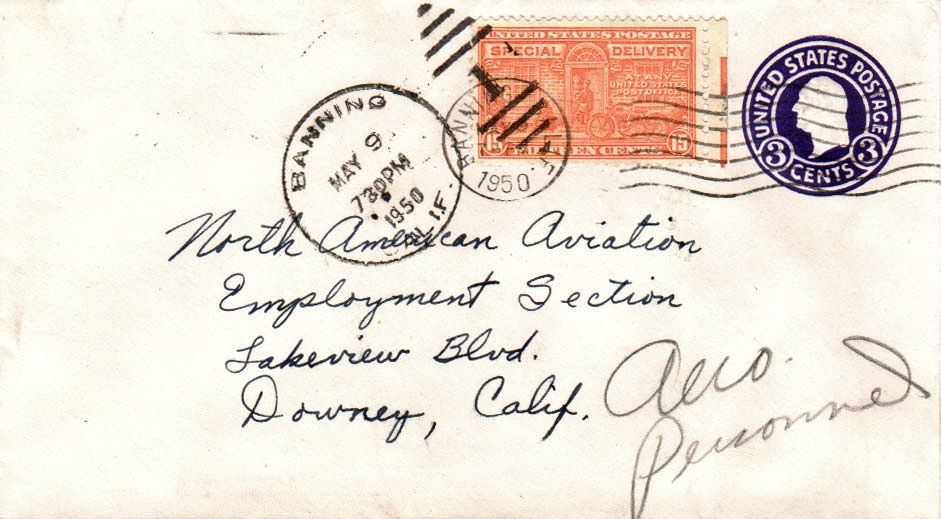 UNITED STATES POSTAGE
SPECIAL DELIVERY
AT ANY
UNITED STATES
POST OFFICE
15 CENTS 15
UNITED STATES POSTAGE
3 CENTS 3
BANNING
MAY 9
730PM
1950
CALIF.
BANNING
1950
North American Aviation
Employment Section
Lakeview Blvd.
Downey, Calif.
Aero.
Personnel